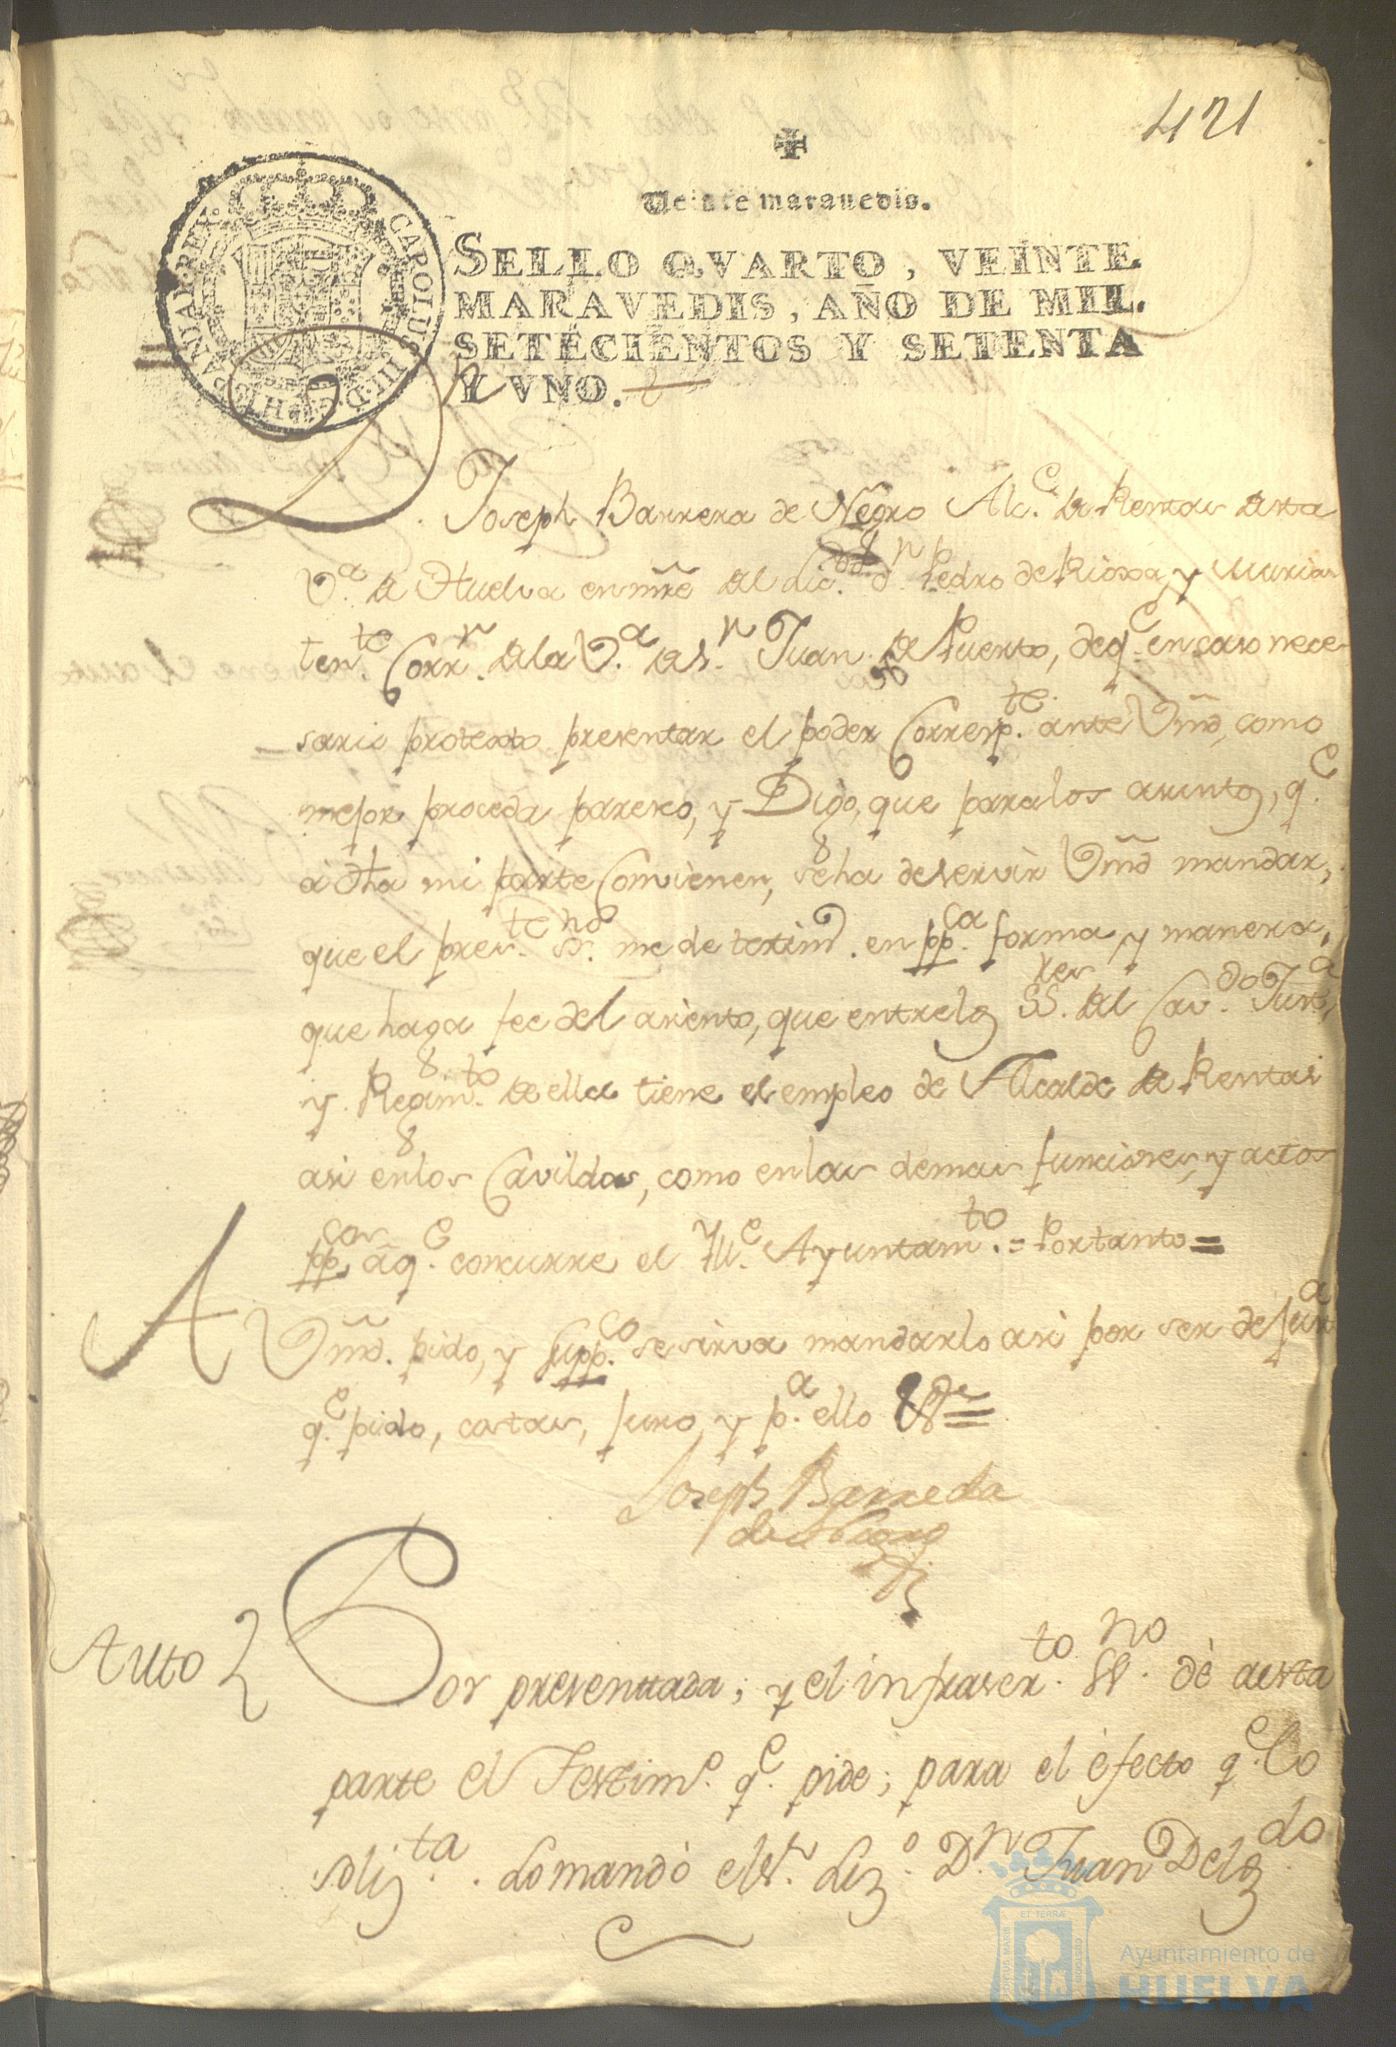 421
Veinte maravedis.
SELLO QVARTO, VEINTE
MARAVEDIS, AÑO DE MIL
SETECIENTOS Y SETENTA
Y VNO.
CAROLUS III D G HISPANIAR REX
Dn Joseph Barrera de Negro Alc.e de Rentas desta
V.a de Huelva en nre del Lic.do d.n Pedro de Rioxa, y Murias
ten.te Corr.r de la V.a de S.n Juan del Puerto, de q.e en caso nece-
sario protexto presentar el poder Corresp.te ante Vmd, como
mejor proceda parezco, y Digo, que para los asuntos, q.e
a dha mi parte Convienen, se ha deservir Vmd mandar,
que el pres.te ss.no me de textim.o en pp.ca forma, y manera,
que haga fee del asiento, que entre los SS.res del Cav.do Just.a,
y Regim.to de ella tiene el empleo de Alcalde de Rentas
asi en los Cavildos, como en las demas funciones, y actos
pp.cos aq.e concurre el Ill.e Ayuntam.to = Portanto =
A Vmd. pido, y supp.co se sirva mandarlo asi por ser de just.a
q.e pido, costas, juro, y p.a ello &.a =
Joseph Barreda
de Negro
Auto
Por presentada; y el infrascr.to ss.no dè a esta
parte el Testim.o q.e pide; para el efecto q.e lo
soliz.ta. Lo mandò el S.r Liz.o D.n Juan Delg.do
ET TERRAE
Ayuntamiento de
HUELVA